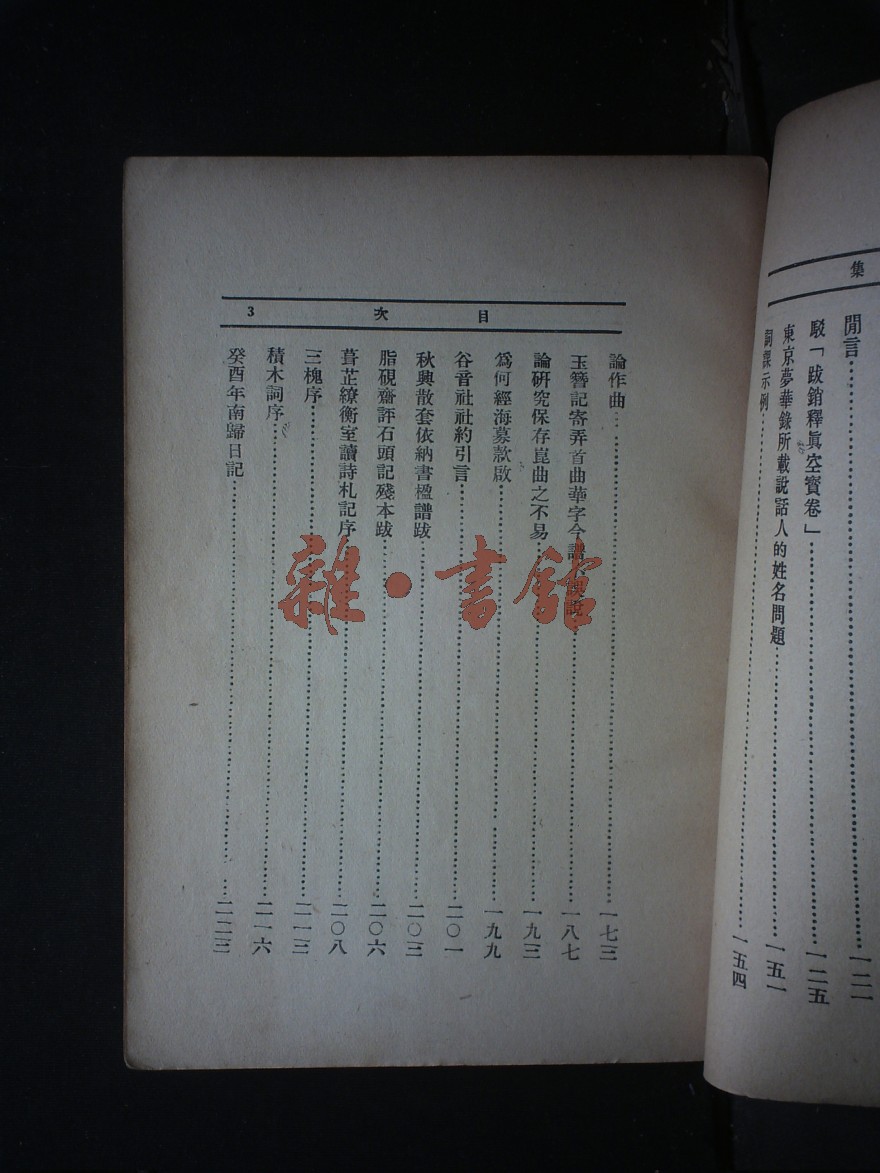 集
閒言 一二一
駁「跋銷釋眞空寶卷」 一二五
東京夢華錄所載說話人的姓名問題 一五一
詞課示例 一五四
目 次 3
論作曲 一七三
玉簪記寄弄首曲華字今譜 誤說 一八七
論研究保存崑曲之不易 一九三
爲何經海募款啟 一九九
谷音社社約引言 二〇一
秋興散套依納書楹譜跋 二〇三
脂硯齋評石頭記殘本跋 二〇六
葺芷繚衡室讀詩札記序 二〇八
三槐序 二一三
積木詞序 二一六
癸酉年南歸日記 二二三
雜·書館